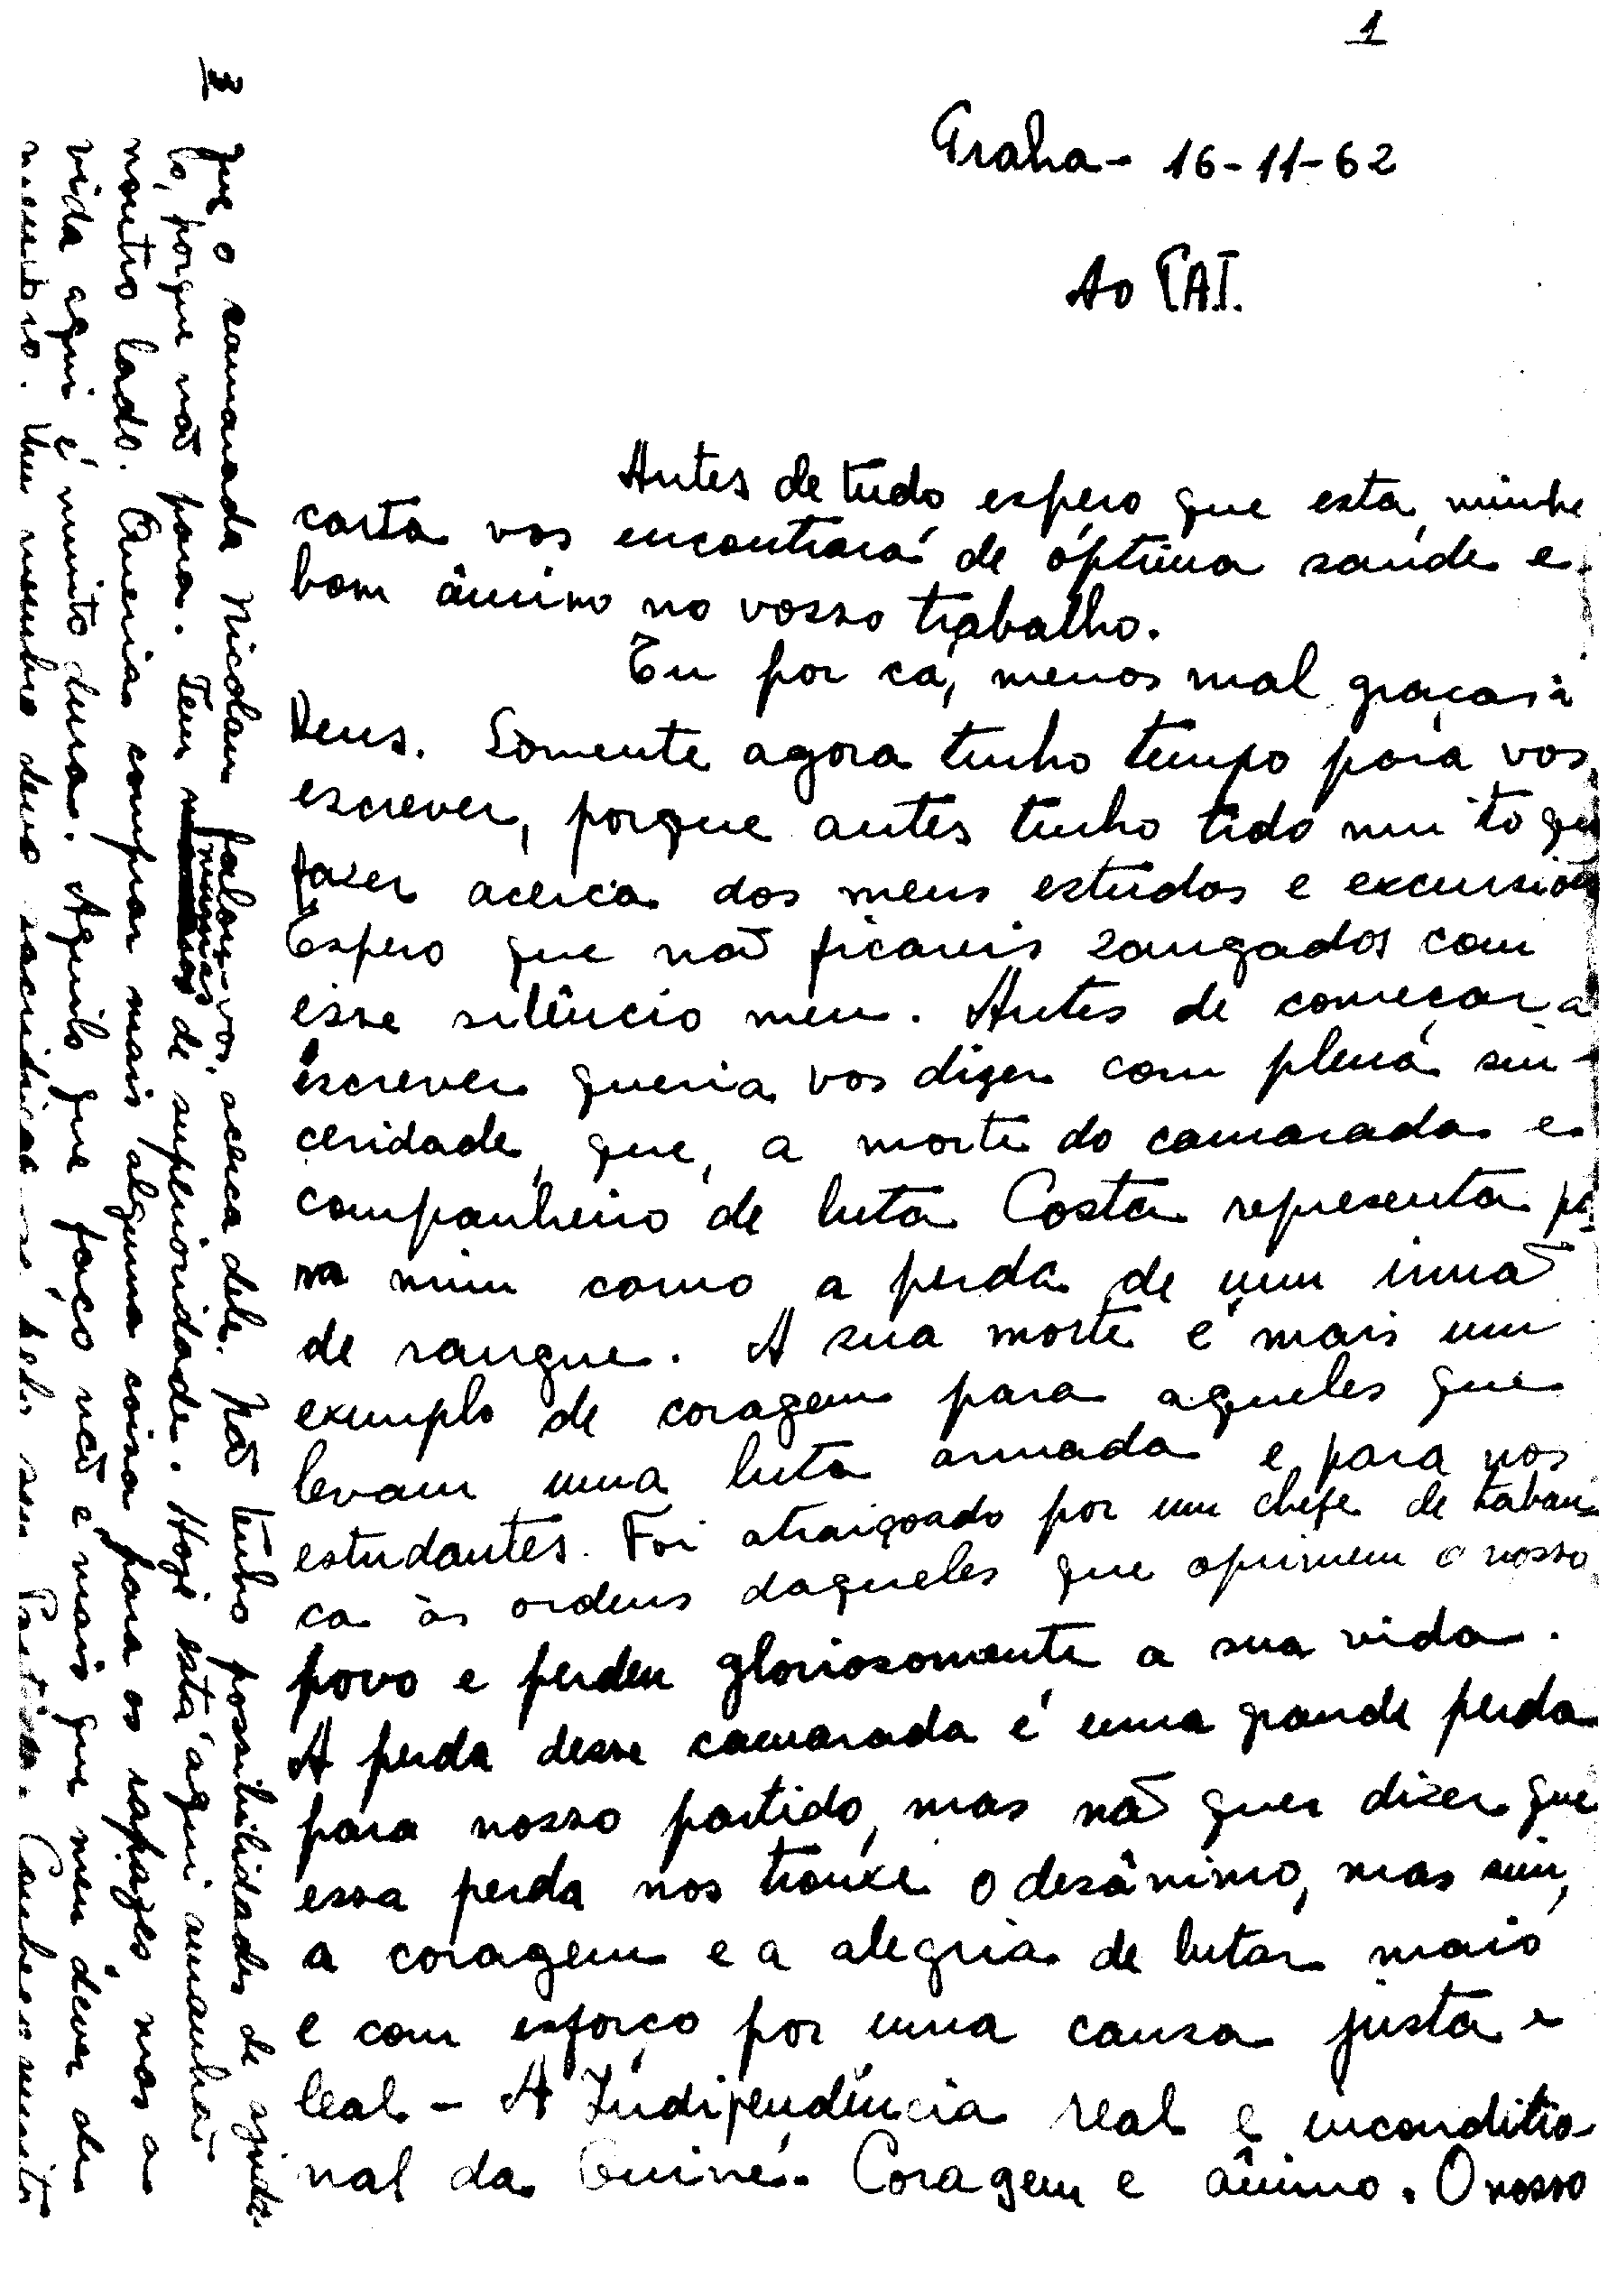 1
Praha - 16-11-62
Ao PAI.
Antes de tudo espero que esta minha
carta vos encontrará de óptima saúde e
bom ânimo no vosso trabalho.
Eu por cá, menos mal graças à
Deus. Somente agora tenho tempo para vos
escrever, porque antes tenho tido muito que
fazer acerca dos meus estudos e excursões
Espero que não ficareis zangados com
esse silêncio meu. Antes de começar a
escrever queria vos dizer com plena sin-
ceridade, que, a morte do camarada e
companheiro de luta Costa representa pa
ra mim como a perda de um irmão
de sangue. A sua morte é mais um
exemplo de coragem para aqueles que
levam uma luta armada e para nos
estudantes. Foi atraiçoado por um chefe de taban
ca às ordens daqueles que oprimem o nosso
povo e perdeu gloriosomente a sua vida.
A perda desse camarada é uma grande perda
para nosso partido, mas não quer dizer que
essa perda nos trouxe o desânimo, mas sim,
a coragem e a alegria de lutar mais
e com esforço por uma causa justa e
leal - A Indipendência real e incondicio
nal da Guiné. Coragem e ânimo. O nosso
3
que o camarada Nicolau falou-vos, acerca dele. Não tenho possibilidades de ajuda-
lo, porque não para. Tem manias de superioridade. Hoje está aqui amanhã
noutro lado. Queria comprar mais alguma coisa para os rapazes, mas a
vida aqui é muito dura. Aquilo que faço não é mais que meu dever de
membro. Um membro deve sacrificar-se pelo seu Partido. Conheço muito